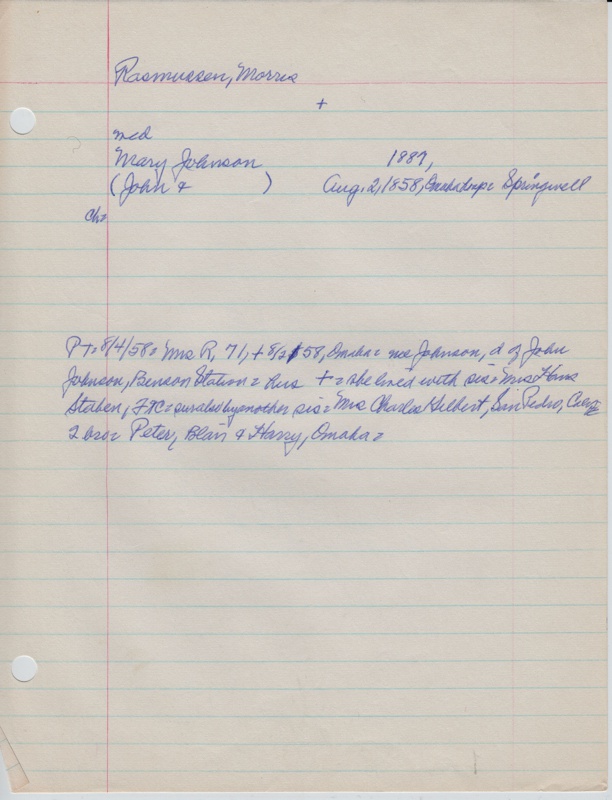 Rasmussen, Morris
+
med
Mary Johnson 1887,
(John & ) Aug. 2, 1958, Omaha= Springwell
Ch=
P+= 8/4/58= Mrs R, 71, + 8/2/58, Omaha= nee Johnson, d of John
Johnson, Benson Station= hus += she lived with sis= Mrs Hans
Staben, FTC= survaled by another sis= Mrs Charles Gilbert, San Pedro, Calif=
2 bro= Peter, Blair & Harry, Omaha=